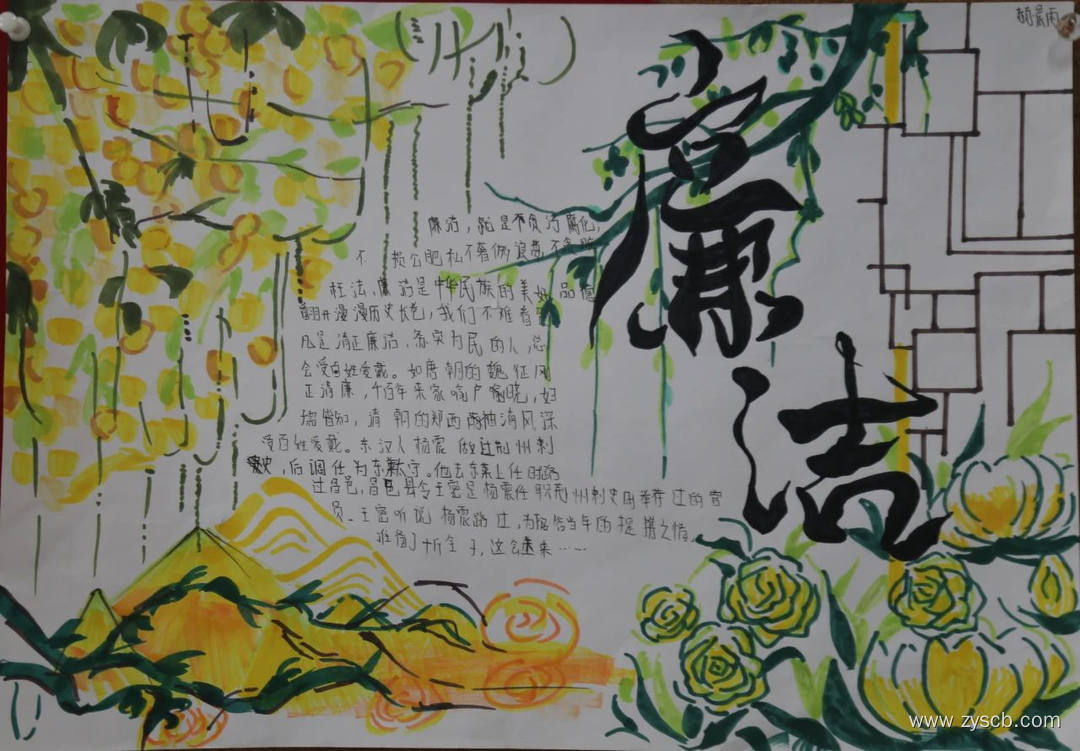 廉洁
廉洁，就是不贪污腐化，
不损公肥私不奢侈浪费不贪赃
枉法，廉洁是中华民族的美好品德
翻开漫漫历史长卷，我们不难看出
凡是清正廉洁，务实为民的人，总
会受百姓爱戴。如唐朝的魏征风
正清廉，千百年来家喻户晓，妇
孺皆知，清朝的郑西两袖清风深
受百姓爱戴。东汉人杨震做过荆州刺
史，后调任为东莱太守。他去东莱上任时路
过昌邑，昌邑县令王密是杨震任职荆州刺史时举荐过的官
员。王密听说杨震路过，为报答当年的提携之情，
准备了十斤金子，这会送来……
www.zyscb.com